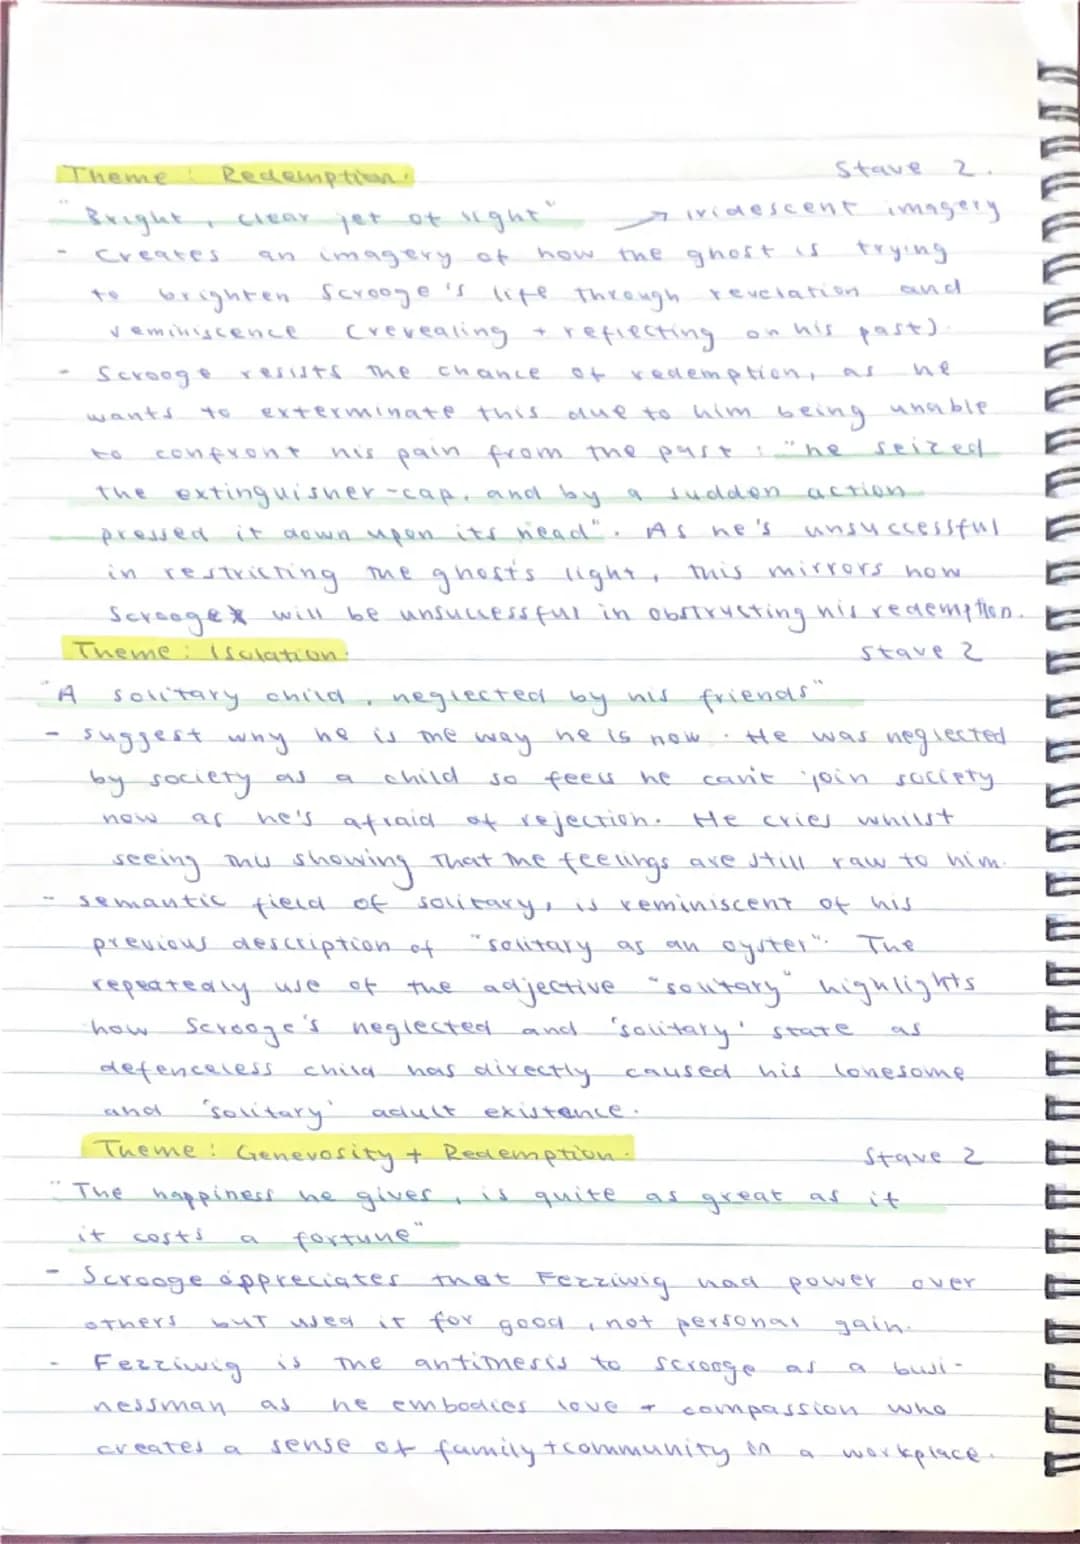 Theme : Redemption. Stave 2.
"Bright, clear jet of light" → iridescent imagery
- Creates an imagery of how the ghost is trying
to brighten Scrooge's life through revelation and
reminiscence (revealing + reflecting on his past).
- Scrooge resists the chance of redemption, as he
wants to exterminate this due to him being unable
to confront his pain from the past : "he seized
the extinguisher-cap, and by a sudden action
pressed it down upon its head". As he's unsuccessful
in restricting the ghosts light, this mirrors how
Scrooge will be unsuccessful in obstructing his redemption.
Theme : Isolation. Stave 2
"A solitary child, neglected by his friends"
- suggest why he is the way he is now. He was neglected
by society as a child so feels he can't join society
now as he's afraid of rejection. He cries whilst
seeing this showing that the feelings are still raw to him.
- semantic field of solitary, is reminiscent of his
previous description of "solitary as an oyster". The
repeatedly use of the adjective "solitary" highlights
how Scrooge's neglected and 'solitary' state as
defenceless child has directly caused his lonesome
and 'solitary' adult existence.
Theme : Generosity + Redemption. Stave 2
"The happiness he gives, is quite as great as it
it costs a fortune"
- Scrooge appreciates that Fezziwig had power over
others but used it for good, not personal gain.
- Fezziwig is the antithesis to scrooge as a busi-
nessman as he embodies love + compassion who
creates a sense of family + community in a workplace.